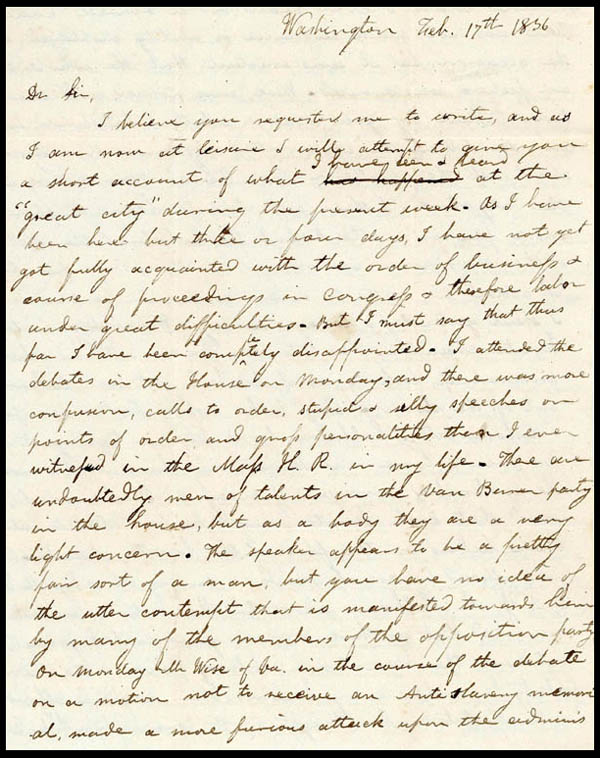 Washington Feb. 17th 1836
Dr Sir,
I believe you requested me to write, and as
I am now at leisure I will attempt to give you
I have seen & heard
a short account of what has happened at the
"great city" during the present week. As I have
been here but three or four days, I have not yet
got fully acquainted with the order of business &
course of proceedings in Congress & therefore labor
under great difficulties. But I must say that thus
far I have been completely disappointed. I attended the
debates in the House on Monday, and there was more
confusion, calls to order, stupid & silly speeches on
points of order, and gross personalities than I ever
witnessed in the Mass H. R. in my life. There are
undoubtedly men of talents in the Van Buren party
in the house, but as a body they are a very
light concern. The speaker appears to be a pretty
fair sort of a man, but you have no idea of
the utter contempt that is manifested towards him
by many of the members of the opposition party
On Monday Mr Wise of Va. in the course of the debate
on a motion not to receive an Antislavery memori
al, made a more furious attack upon the adminis